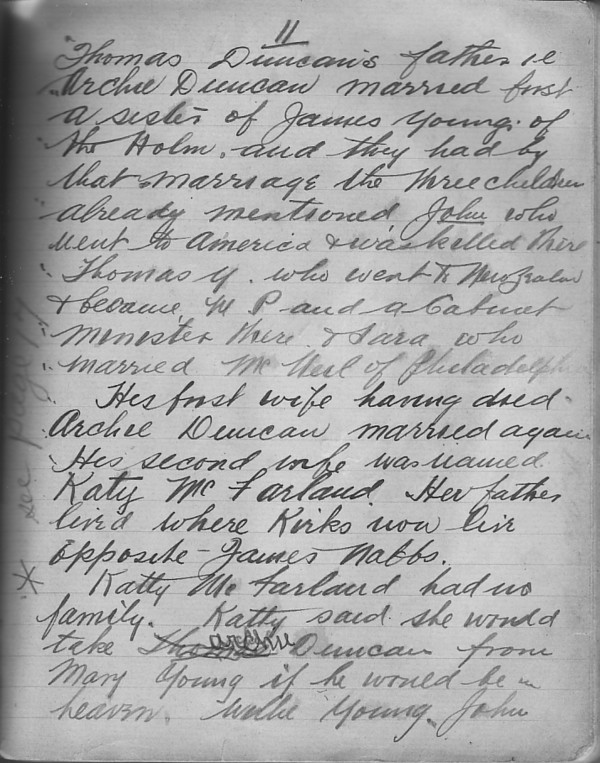 11
Thomas Duncan's father i.e
Archie Duncan married first
a sister of James Young of
the Holm. and they had by
that marriage the three children
already mentioned, John who
went to America & was killed there
Thomas Y. who went to New Zealand
& became M P and a Cabinet
Menester there. & Sara who
married Mc Neil of Philadelphia
His first wife having died
Archie Duncan married again
His second wife was named
Katy Mc Farland. Her father
lived where Kirks now live
opposite James Nabbs.
* see page 17
Katty Mc Farland had no
family. Katty said she would
take Archie Duncan from
Mary Young if he would be in
heaven. Willie Young. John